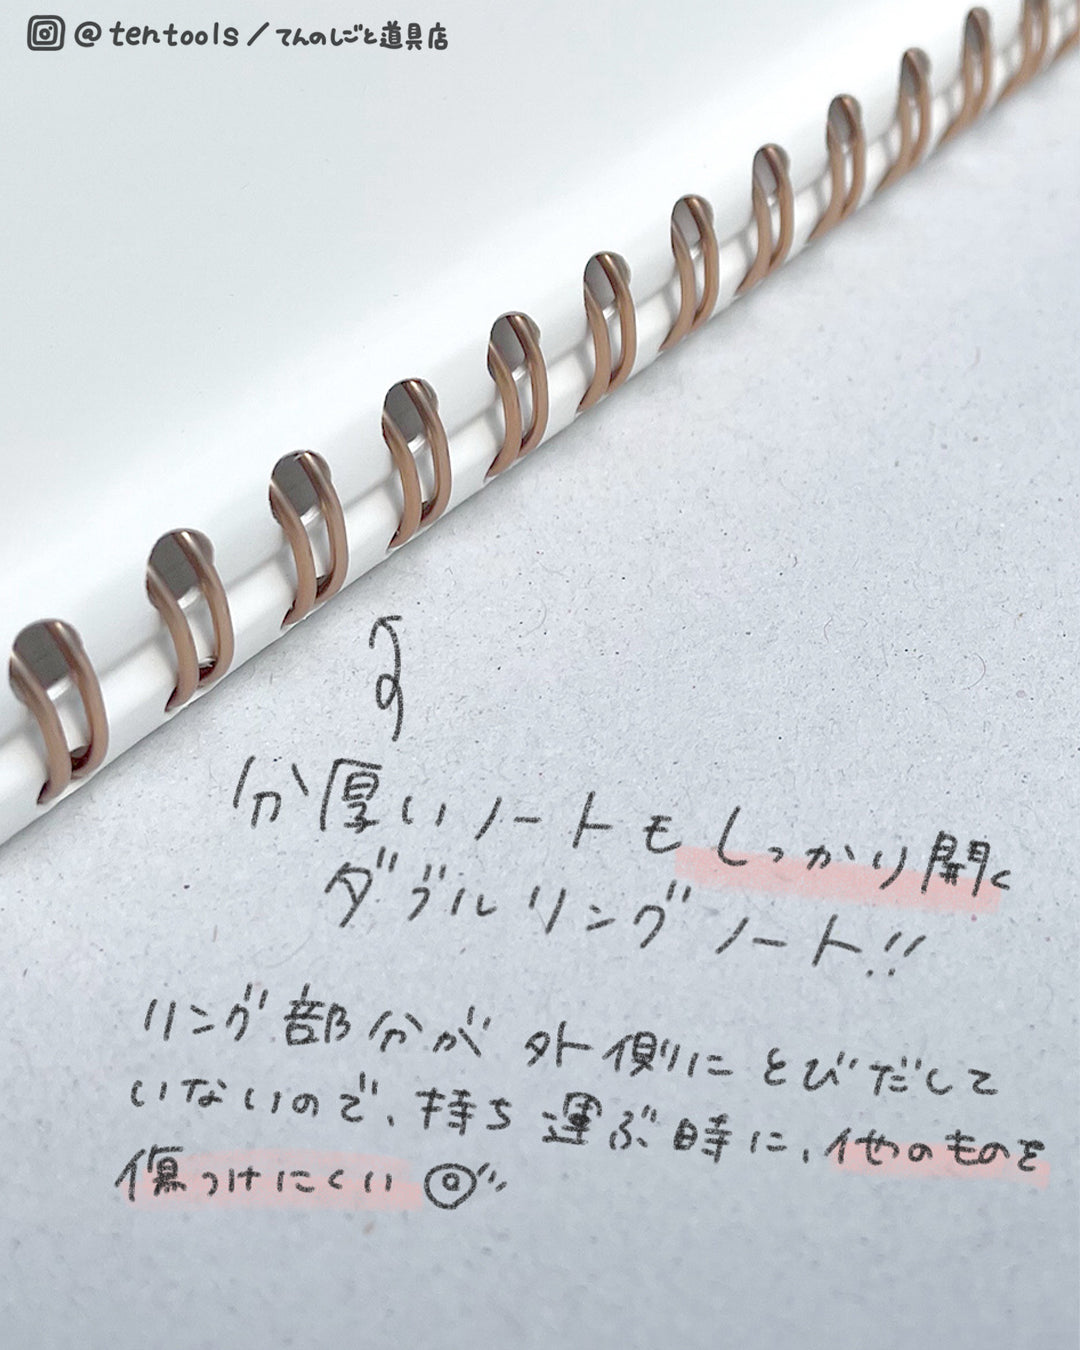 @tentools/てんのしごと道具店
分厚いノートもしっかり開く
ダブルリングノート!!
リング部分が外側にとびだして
いないので、持ち運ぶ時に、他のものを
傷つけにくい◎